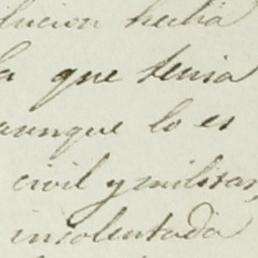 lucion hecha
a que tenia
aunque lo es
civil y militar,
insolentada